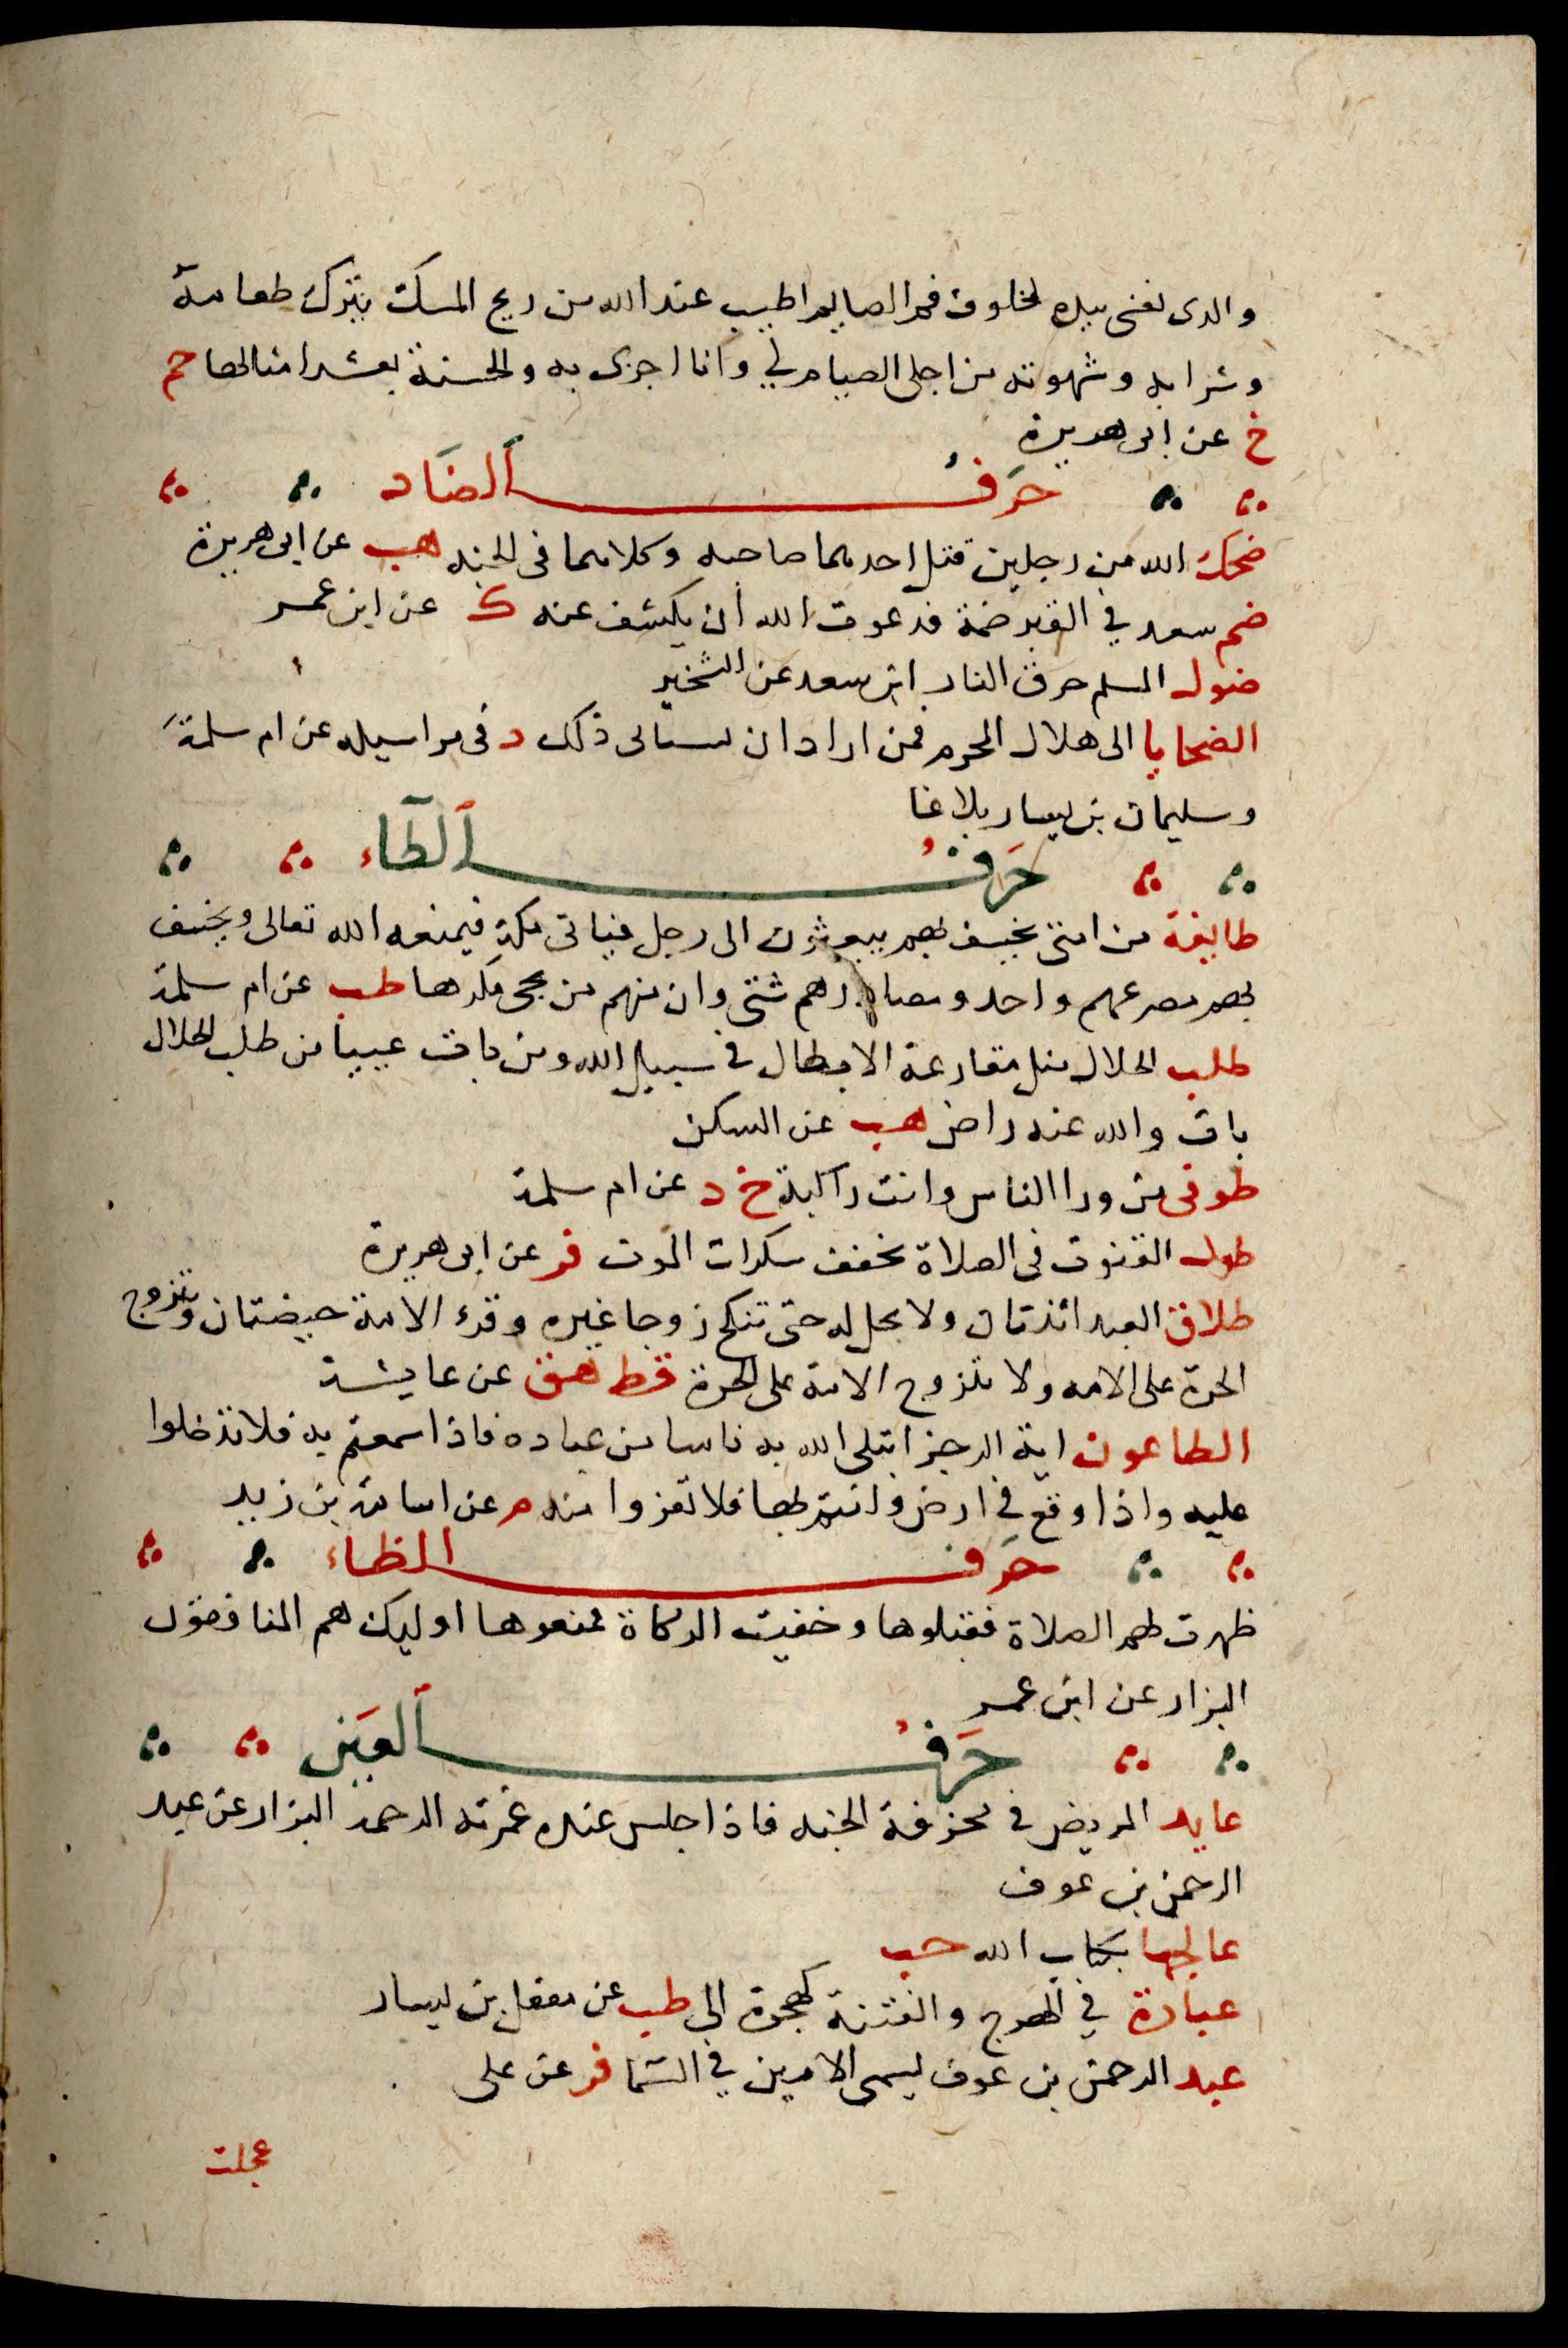 والدى نفسى بيده لخلوف فم الصايم اطيب عند الله من ريح المسك يترك طعامه
وشرابه وشهوته من اجلى الصيام لي وانا اجزى به والحسنة بعشر امثالها حم
خ عن ابى هريرة
حَرفُ الضَاد
ضحك الله من رجلين قتل احدهما صاحبه وكلاهما فى الجنه هب عن ابى هريرة
ضم سعد في القبر ضمة فدعوت الله أن يكشف عنه ك عن ابن عمر
ضول المسلم حرق النار ابن سعد عن الشخير
الضحايا الى هلال المحرم فمن اراد ان يستانى ذلك د فى مراسيله عن ام سلمة
وسليمان بن يسار بلاغا
حَرفُ الطآء
طايفة من امتى يخسف بهم يبعثون الى رجل فياتى مكة فيمنعه الله تعالى ويخسف
بهم مصرعهم واحد ومصادرهم شتى وان منهم من يجى مكرها طب عن ام سلمة
طلب الحلال مثل مقارعة الابطال في سبيل الله ومن بات عييا من طلب الحلال
بات والله عنه راض هب عن السكن
طوفى من ورا الناس وانت راكبة خ د عن ام سلمة
طول القنوت فى الصلاة يخفف سكرات الموت فر عن ابى هريرة
طلاق العبد اثنتان ولا يحل له حتى تنكح زوجا غيره وقرء الامة حيضتان وتتزوج
الحرة على الامه ولا تتزوج الامة على الحرة قط هق عن عايشة
الطاعون اية الرجز ابتلى الله به ناسا من عباده فاذا سمعتم به فلا تدخلوا
عليه واذا وقع في ارض وانتم بها فلا تفروا منه م عن اسامة بن زيد
حَرف الظاء
ظهرت لهم الصلاة فقبلوها وخفيت الزكاة فمنعوها اوليك هم المنافقون
البزار عن ابن عمر
حَرفُ العَين
عايد المريض في مخرفة الجنه فاذا جلس عنده غمرته الرحمة البزار عن عبد
الرحمن بن عوف
عالجيها بكتاب الله حب
عبادة في الهرج والفتنة كهجرة الى طب عن معقل بن يسار
عبد الرحمن بن عوف يسمى الامين في السما فر عن على
عجلت